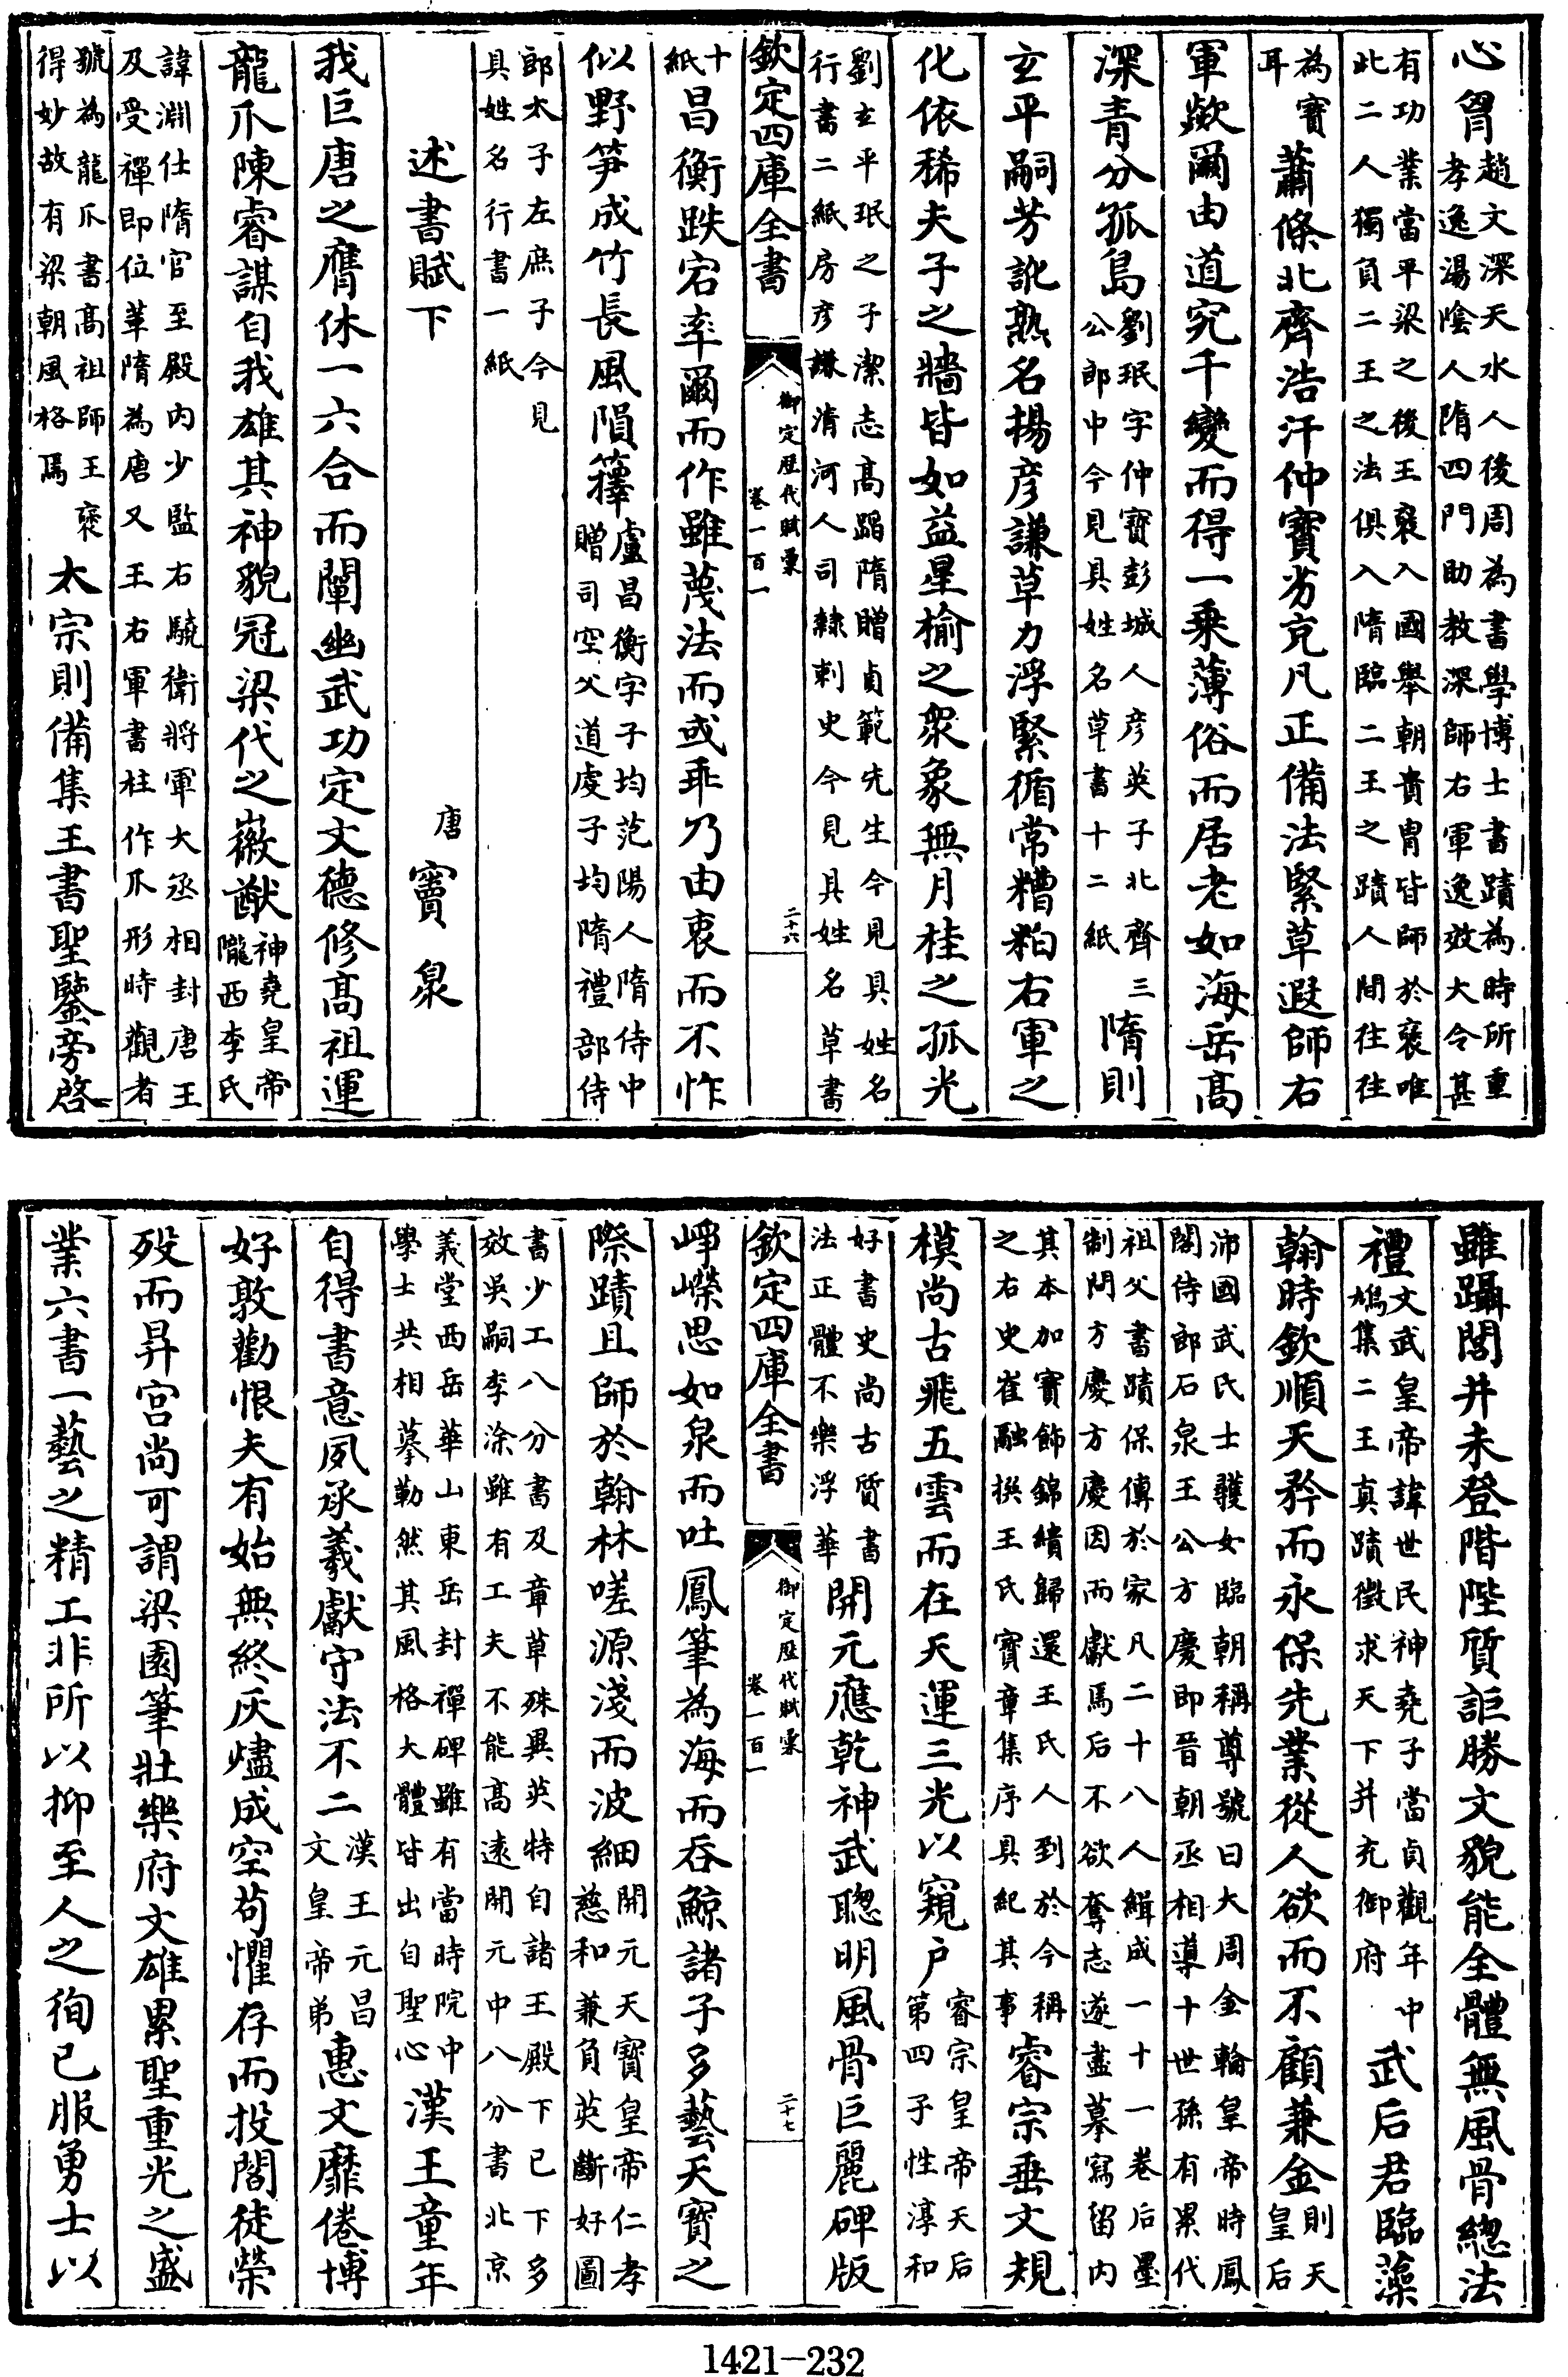 心胷趙文深天水人後周為書學博士書蹟為時所重孝逸湯隂人隋四門助教深師右軍逸效大令甚
有功業當平梁之後王褒入國舉朝貴胄皆師於褒唯此二人獨負二王之法俱入隋臨二王之蹟人間往往
為寳耳蕭條北齊浩汗仲寳劣克凡正備法緊草遐師右
軍歘爾由道究千變而得一乗薄俗而居老如海岳髙
深青分孤島劉珉字仲寳彭城人彦英子北齊三公郎中今見具姓名草書十二紙隋則
玄平嗣芳訛熟名揚彦謙草力浮緊循常糟粕右軍之
化依稀夫子之牆皆如益星榆之衆象無月桂之孤光
劉玄平珉之子潔志髙蹈隋贈貞範先生今見具姓名行書二紙房彦謙清河人司隸刺史今見具姓名草書
欽定四庫全書
御定歴代賦彙卷一百一
二十六
十紙昌衡跌宕率爾而作雖蔑法而或乖乃由衷而不怍
似野笋成竹長風隕籜盧昌衡字子均范陽人隋侍中贈司空父道䖍子均隋禮部侍
郎太子左庶子今見具姓名行書一紙
述書賦下
唐竇臮
我巨唐之膺休一六合而闡幽武功定文德修髙祖運
龍爪陳睿謀自我雄其神貌冠梁代之徽猷神堯皇帝隴西李氏
諱淵仕隋官至殿内少監右驍衛將軍大丞相封唐王及受禪即位革隋為唐又王右軍書柱作爪形時觀者
號為龍爪書髙祖師王褒得妙故有梁朝風格焉太宗則備集王書聖鑒旁啓
雖躡閭井未登階陛質詎勝文貌能全體無風骨總法
禮文武皇帝諱世民神堯子當貞觀年中鳩集二王真蹟徴求天下并充御府武后君臨藻
翰時欽順天矜而永保先業從人欲而不顧兼金則天皇后
沛國武氏士彠女臨朝稱尊號曰大周金輪皇帝時鳳閣侍郎石泉王公方慶即晉朝丞相導十世孫有累代
祖父書蹟保傳於家凡二十八人緝成一十一卷后墨制問方慶方慶因而獻焉后不欲奪志遂盡摹寫留内
其本加寳飾錦繢歸還王氏人到於今稱之右史崔融撰王氏寳章集序具紀其事睿宗垂文規
模尚古飛五雲而在天運三光以窺户睿宗皇帝天后第四子性淳和
好書史尚古質書法正體不樂浮華開元應乾神武聰明風骨巨麗碑版
欽定四庫全書
御定歴代賦彙卷一百一
二十七
崢嶸思如泉而吐鳳筆為海而吞鯨諸子多藝天寳之
際蹟且師於翰林嗟源淺而波細開元天寳皇帝仁孝慈和兼負英斷好圖
書少工八分書及章草殊異英特自諸王殿下已下多效吳嗣李涂雖有工夫不能髙逺開元中八分書北京
義堂西岳華山東岳封禪碑雖有當時院中學士共相摹勒然其風格大體皆出自聖心漢王童年
自得書意夙承羲獻守法不二漢王元昌文皇帝弟惠文靡倦博
好敦勸恨夫有始無終灰燼成空茍懼存而投閤徒榮
歿而昇宮尚可謂梁園筆壯樂府文雄累聖重光之盛
業六書一藝之精工非所以抑至人之徇已服勇士以
1421-232